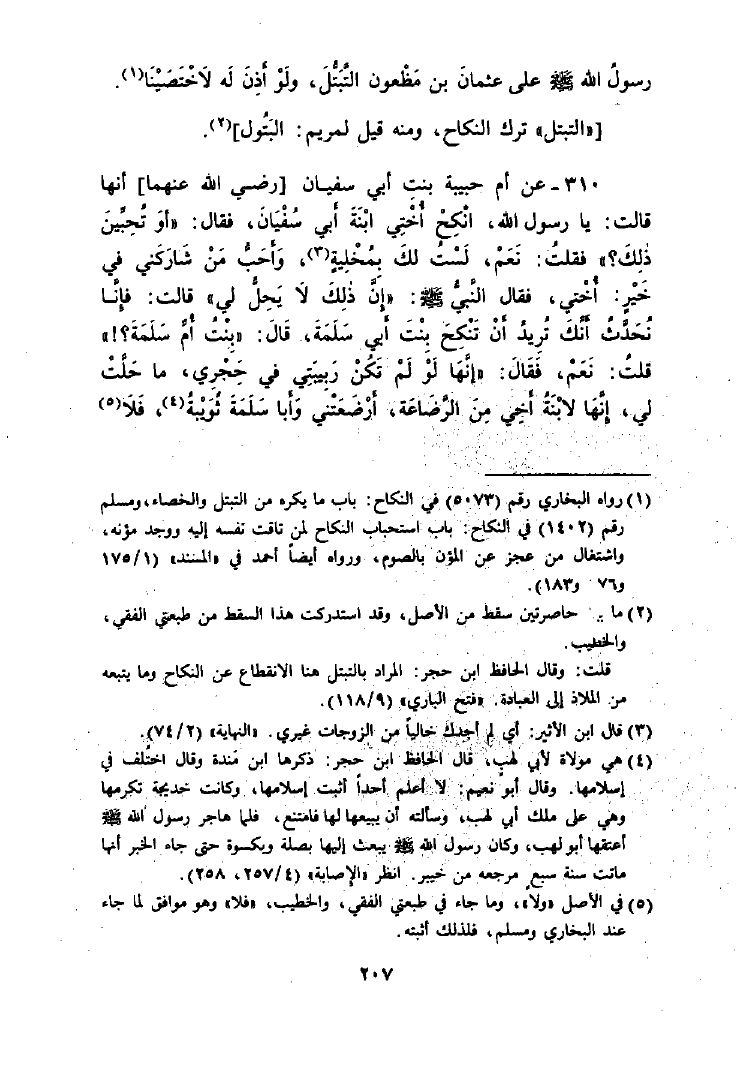 رسولُ الله ﷺ على عثمانَ بن مَظْعون التَّبَتُّلَ، ولَوْ أَذِنَ لَه لَاخْتَصَيْنَا(١).
[«التبتل» ترك النكاح، ومنه قيل لمريم: البَتُول](٢).
٣١٠ - عن أم حبيبة بنتِ أبي سفيان [رضي الله عنهما] أنها
قالت: يا رسول الله، انْكِحْ أُخْتِي ابْنَةَ أَبي سُفْيَانَ، فقال: «أَوَ تُحِبِّينَ
ذٰلِكَ؟» فقلتُ: نَعَمْ، لَسْتُ لكَ بِمُخْلِيةٍ(٣)، وَأَحَبُّ مَنْ شارَكَني في
خَيْرٍ: أُخْتي، فقال النَّبيُّ ﷺ: «إِنَّ ذٰلِكَ لَا يَحِلُّ لي» قالت: فإنَّا
نُحَدَّثُ أَنَّكَ تُرِيدُ أَنْ تَنْكِحَ بِنْتَ أبي سَلَمَةَ، قَالَ: «بِنْتُ أُمِّ سَلَمَةَ؟!»
قلتُ: نَعَمْ، فَقَالَ: «إِنَّهَا لَوْ لَمْ تَكُنْ رَبِيبَتِي في حَجْرِي، ما حَلَّتْ
لي، إِنَّهَا لَابْنَةُ أَخِي مِنَ الرَّضَاعَة، أَرْضَعَتْني وَأَبا سَلَمَةَ ثُوَيْبَةُ(٤)، فَلَا(٥)
(١) رواه البخاري رقم (٥٠٧٣) في النكاح: باب ما يكره من التبتل والخصاء، ومسلم
رقم (١٤٠٢) في النكاح: باب استحباب النكاح لمن تاقت نفسه إليه ووجد مؤنه،
واشتغال من عجز عن المؤن بالصوم، ورواه أيضاً أحمد في «المسند» (١/ ١٧٥
و٧٦ و١٨٣).
(٢) ما حاصرتين سقط من الأصل، وقد استدركت هذا السقط من طبعتي الفقي،
والخطيب.
قلت: وقال الحافظ ابن حجر: المراد بالتبتل هنا الانقطاع عن النكاح وما يتبعه
من الملاذ إلى العبادة. «فتح الباري» (٩/ ١١٨).
(٣) قال ابن الأثير: أي لم أجدك خالياً من الزوجات غيري. «النهاية» (٢/ ٧٤).
(٤) هي مولاة لأبي لهب، قال الحافظ ابن حجر: ذكرها ابن مَندة وقال اختُلف في
إسلامها. وقال أبو نعيم: لا أعلم أحداً أثبت إسلامها، وكانت خديجة تكرمها
وهي على ملك أبي لهب، وسألته أن يبيعها لها فامتنع، فلما هاجر رسول الله ﷺ
أعتقها أبو لهب، وكان رسول الله ﷺ يبعث إليها بصلة وبكسوة حتى جاء الخبر أنها
ماتت سنة سبع مرجعه من خيبر. انظر «الإصابة» (٤/ ٢٥٧، ٢٥٨).
(٥) في الأصل «ولا»، وما جاء في طبعتي الفقي، والخطيب، «فلا» وهو موافق لما جاء
عند البخاري ومسلم، فلذلك أثبته.
٢٠٧